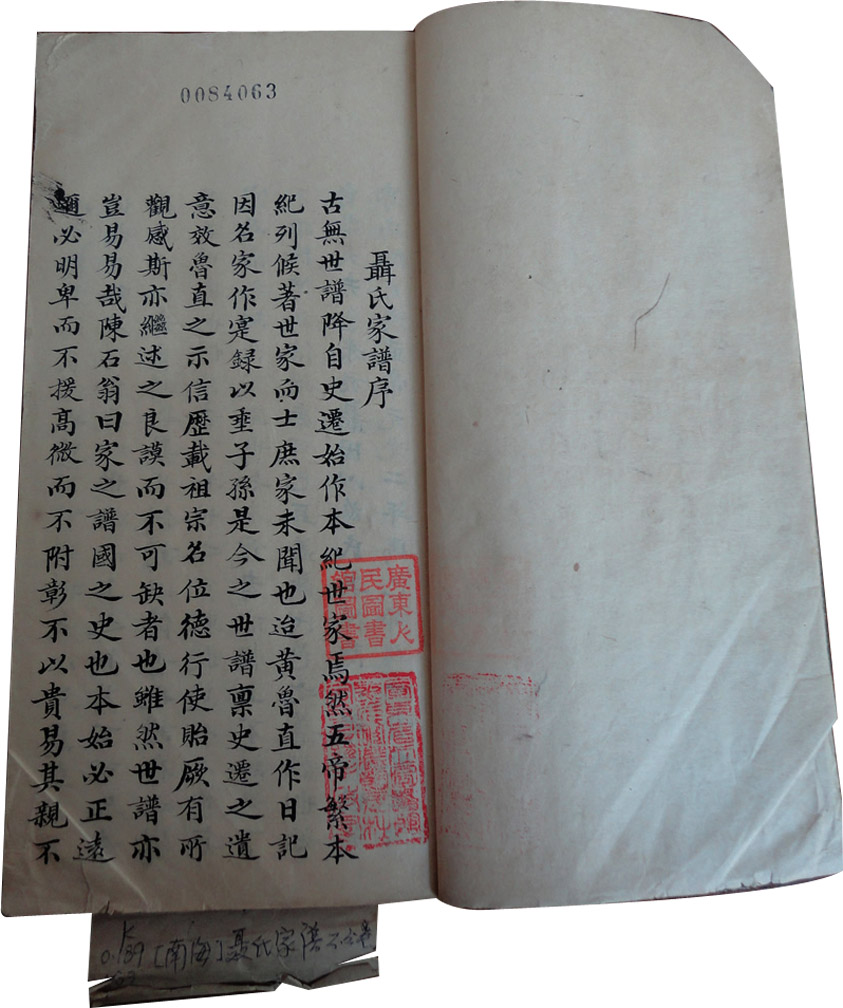 0084063
聶氏家譜序
古無世譜降自史遷始作本紀世家焉然五帝繁本
紀列候著世家而士庶家未聞也迨黄魯直作日記
因名家作寔録以垂子孫是今之世譜禀史遷之遺
意效魯直之示信歷載祖宗名位德行使貽厥有所
觀感斯亦繼述之良謨而不可缺者也雖然世譜亦
豈易易哉陳石翁曰家之譜國之史也本始必正遠
邇必明卑而不援高微而不附彰不以貴易其親不
廣東人
民圖書
館圖書
K
0.189
[南海]聶氏家譜不分卷